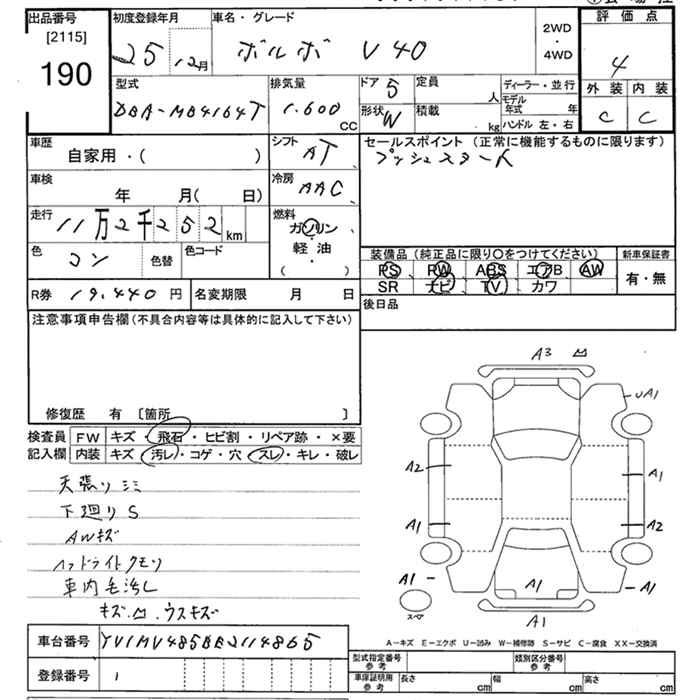 出品番号 初度登録年月 車名・グレード 評価点
[2115] 25 12月 ボルボ V40 2WD・4WD 4
190
型式 排気量 ドア 5 定員 人 ディーラー・並行 外装 内装
DBA-MB4164T 1.600 CC 形状 W 積載 kg モデル年式 年 C C
ハンドル 左・右
車歴 シフト セールスポイント (正常に機能するものに限ります)
自家用・( ) AT プッシュスタート
車検 冷房
年 月( 日) AAC
走行 11万2千252km 燃料
ガソリン・軽油・( )
色 コン 色替 色コード
装備品 (純正品に限り〇をつけてください) 新車保証書
PS PW ABS エアB AW 有・無
SR ナビ TV カワ
R券 19,440 円 名変期限 月 日 後日品
注意事項申告欄 (不具合内容等は具体的に記入して下さい)
修復歴 有 [箇所 ]
検査員 FW キズ・飛石・ヒビ割・リペア跡・×要
記入欄 内装 キズ・汚レ・コゲ・穴・スレ・キレ・破レ
天張りシミ
下廻りS
AWキズ
ヘッドライトクモリ
車内毛汚し
キズ・凹・ウスキズ
A3 凹
UA1
A2 A1
A1 A2
A1 A1 A1
スペア A1
A-キズ E-エクボ U-凹み W-補修跡 S-サビ C-腐食 XX-交換済
車台番号 YV1MV485BE2114865
型式指定番号 参考 類別区分番号 参考
登録番号 1
車庫証明用 参考 長さ cm 幅 cm 高さ cm